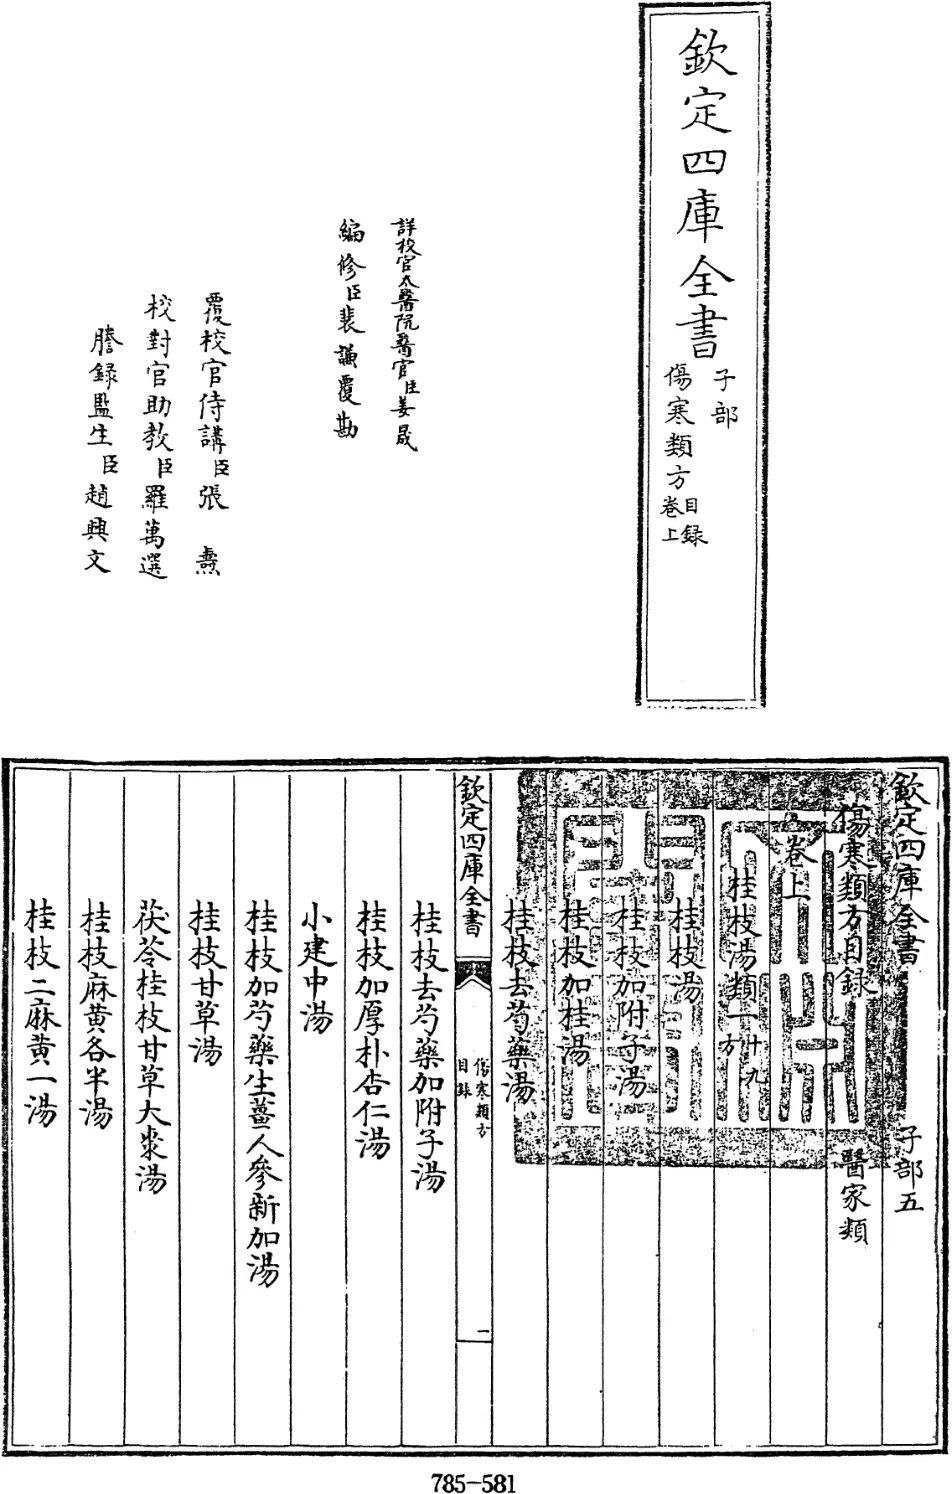 欽定四庫全書
子部
傷寒類方
目録
卷上
詳校官太醫院醫官臣姜晟
編修臣裴謙覆勘
覆校官侍講臣張燾
校對官助教臣羅萬選
謄錄監生臣趙興文
欽定四庫全書 子部五
傷寒類方目録 醫家類
卷上
桂枝湯類一 十九方
桂枝湯
桂枝加附子湯
桂枝加桂湯
桂枝去芍藥湯
欽定四庫全書
傷寒類方
目録
一
桂枝去芍藥加附子湯
桂枝加厚朴杏仁湯
小建中湯
桂枝加芍藥生薑人參新加湯
桂枝甘草湯
茯苓桂枝甘草大棗湯
桂枝麻黄各半湯
桂枝二麻黄一湯
785-581